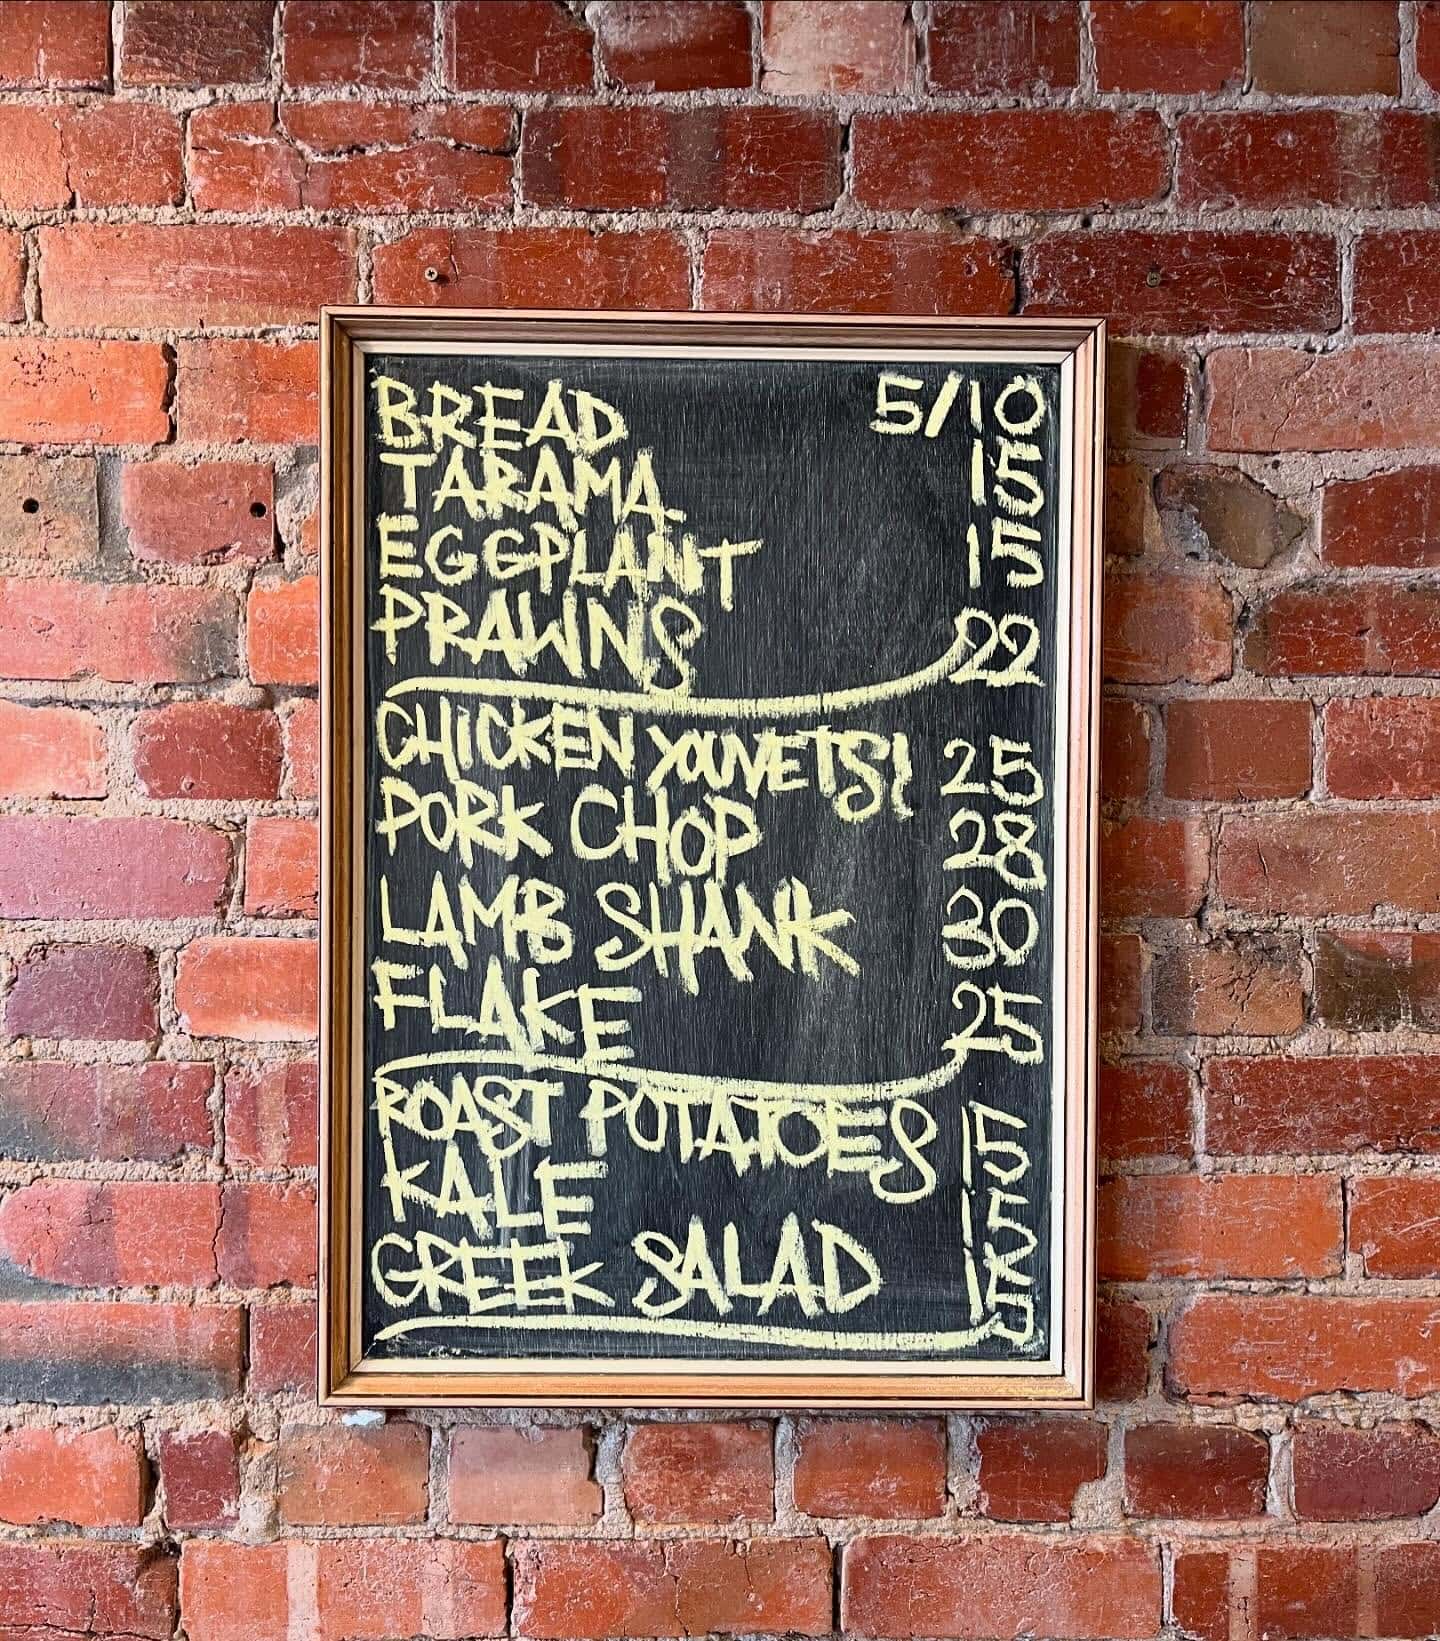 BREAD 5/10
TARAMA 15
EGGPLANT 15
PRAWNS 22
CHICKEN YOUVETSI 25
PORK CHOP 28
LAMB SHANK 30
FLAKE 25
ROAST POTATOES 15
KALE 15
GREEK SALAD 15